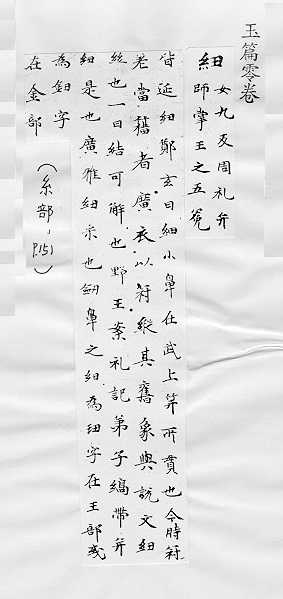 玉篇零卷
紐 女九反周礼弁
師掌王之五冕
皆延紐鄭玄曰紐小鼻在武上笄所貫也今時苻
者當簪者廣衣以苻縱其舊象與說文紐
絲也一曰結可解也野王案礼記弟子縞帶并
紐是也廣雅紐束也劒鼻之紐為鈕字在玉部或
為鈕字
在金部
(糸部,
P.151)